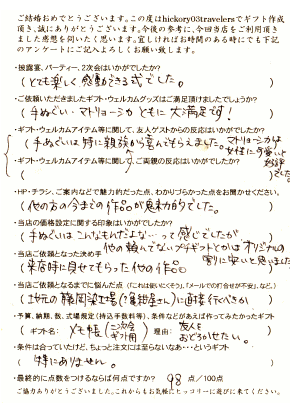 ご結婚おめでとうございます。この度はhickory03travelersでギフト作成
頂き、誠にありがとうございます。今後の参考に、今回当店をご利用頂き
ました感想を伺いたく思います。宜しければお時間のある時にでも下記
のアンケートにご記入よろしくお願い致します。
・披露宴、パーティー、2次会はいかがでしたか？
（とても楽しく感動できる式でした。）
・ご依頼いただきましたギフト・ウェルカムグッズはご満足頂けましたでしょうか？
（手ぬぐい・マトリョーシカともに大満足です！）
・ギフト・ウェルカムアイテム等に関して、友人ゲストからの反応はいかがでしたか？
（手ぬぐいは特に親族から喜んでもらえました。マトリョーシカは
女性に可愛いと
好評
でした。）
・ギフト・ウェルカムアイテム等に関して、ご両親の反応はいかがでしたか？
（ ）
・HP・チラシ、ご案内などで魅力的だった点、わかりづらかった点をお聞かせください。
（他の方の今までの作品が魅力的でした。）
・当店の価格設定に関する印象はいかがでしたか？
（手ぬぐいはこんなもんだよな…って感じでしたが
他の頼んでないプチギフトとかはオリジナルの
割に安いと思いました）
・当店ご依頼となった決め手
（来店時に見せてもらった他の作品）
・当店ご依頼となるまでに悩んだ点（「これは聞いにくそう」、「メールでの打合せが不安」、など）
（地元の静岡染工場（）に直接行くべきか）
・予算、納期、数、式場規定（持込手数料等）、条件などがあえば作ってみたかったギフト
（ギフト名：メモ帳（二次会ギフト用） 理由：友人を
おどろかせたい。）
・条件は合っていたけど、ちょっと注文には至らないなあ・・・というギフト
（特にありません。）
・最終的に点数をつけるならば何点ですか？ 98 点／100点
ご協力ありがとうございました。これからもお気軽にヒッコリーに遊びに来てください。